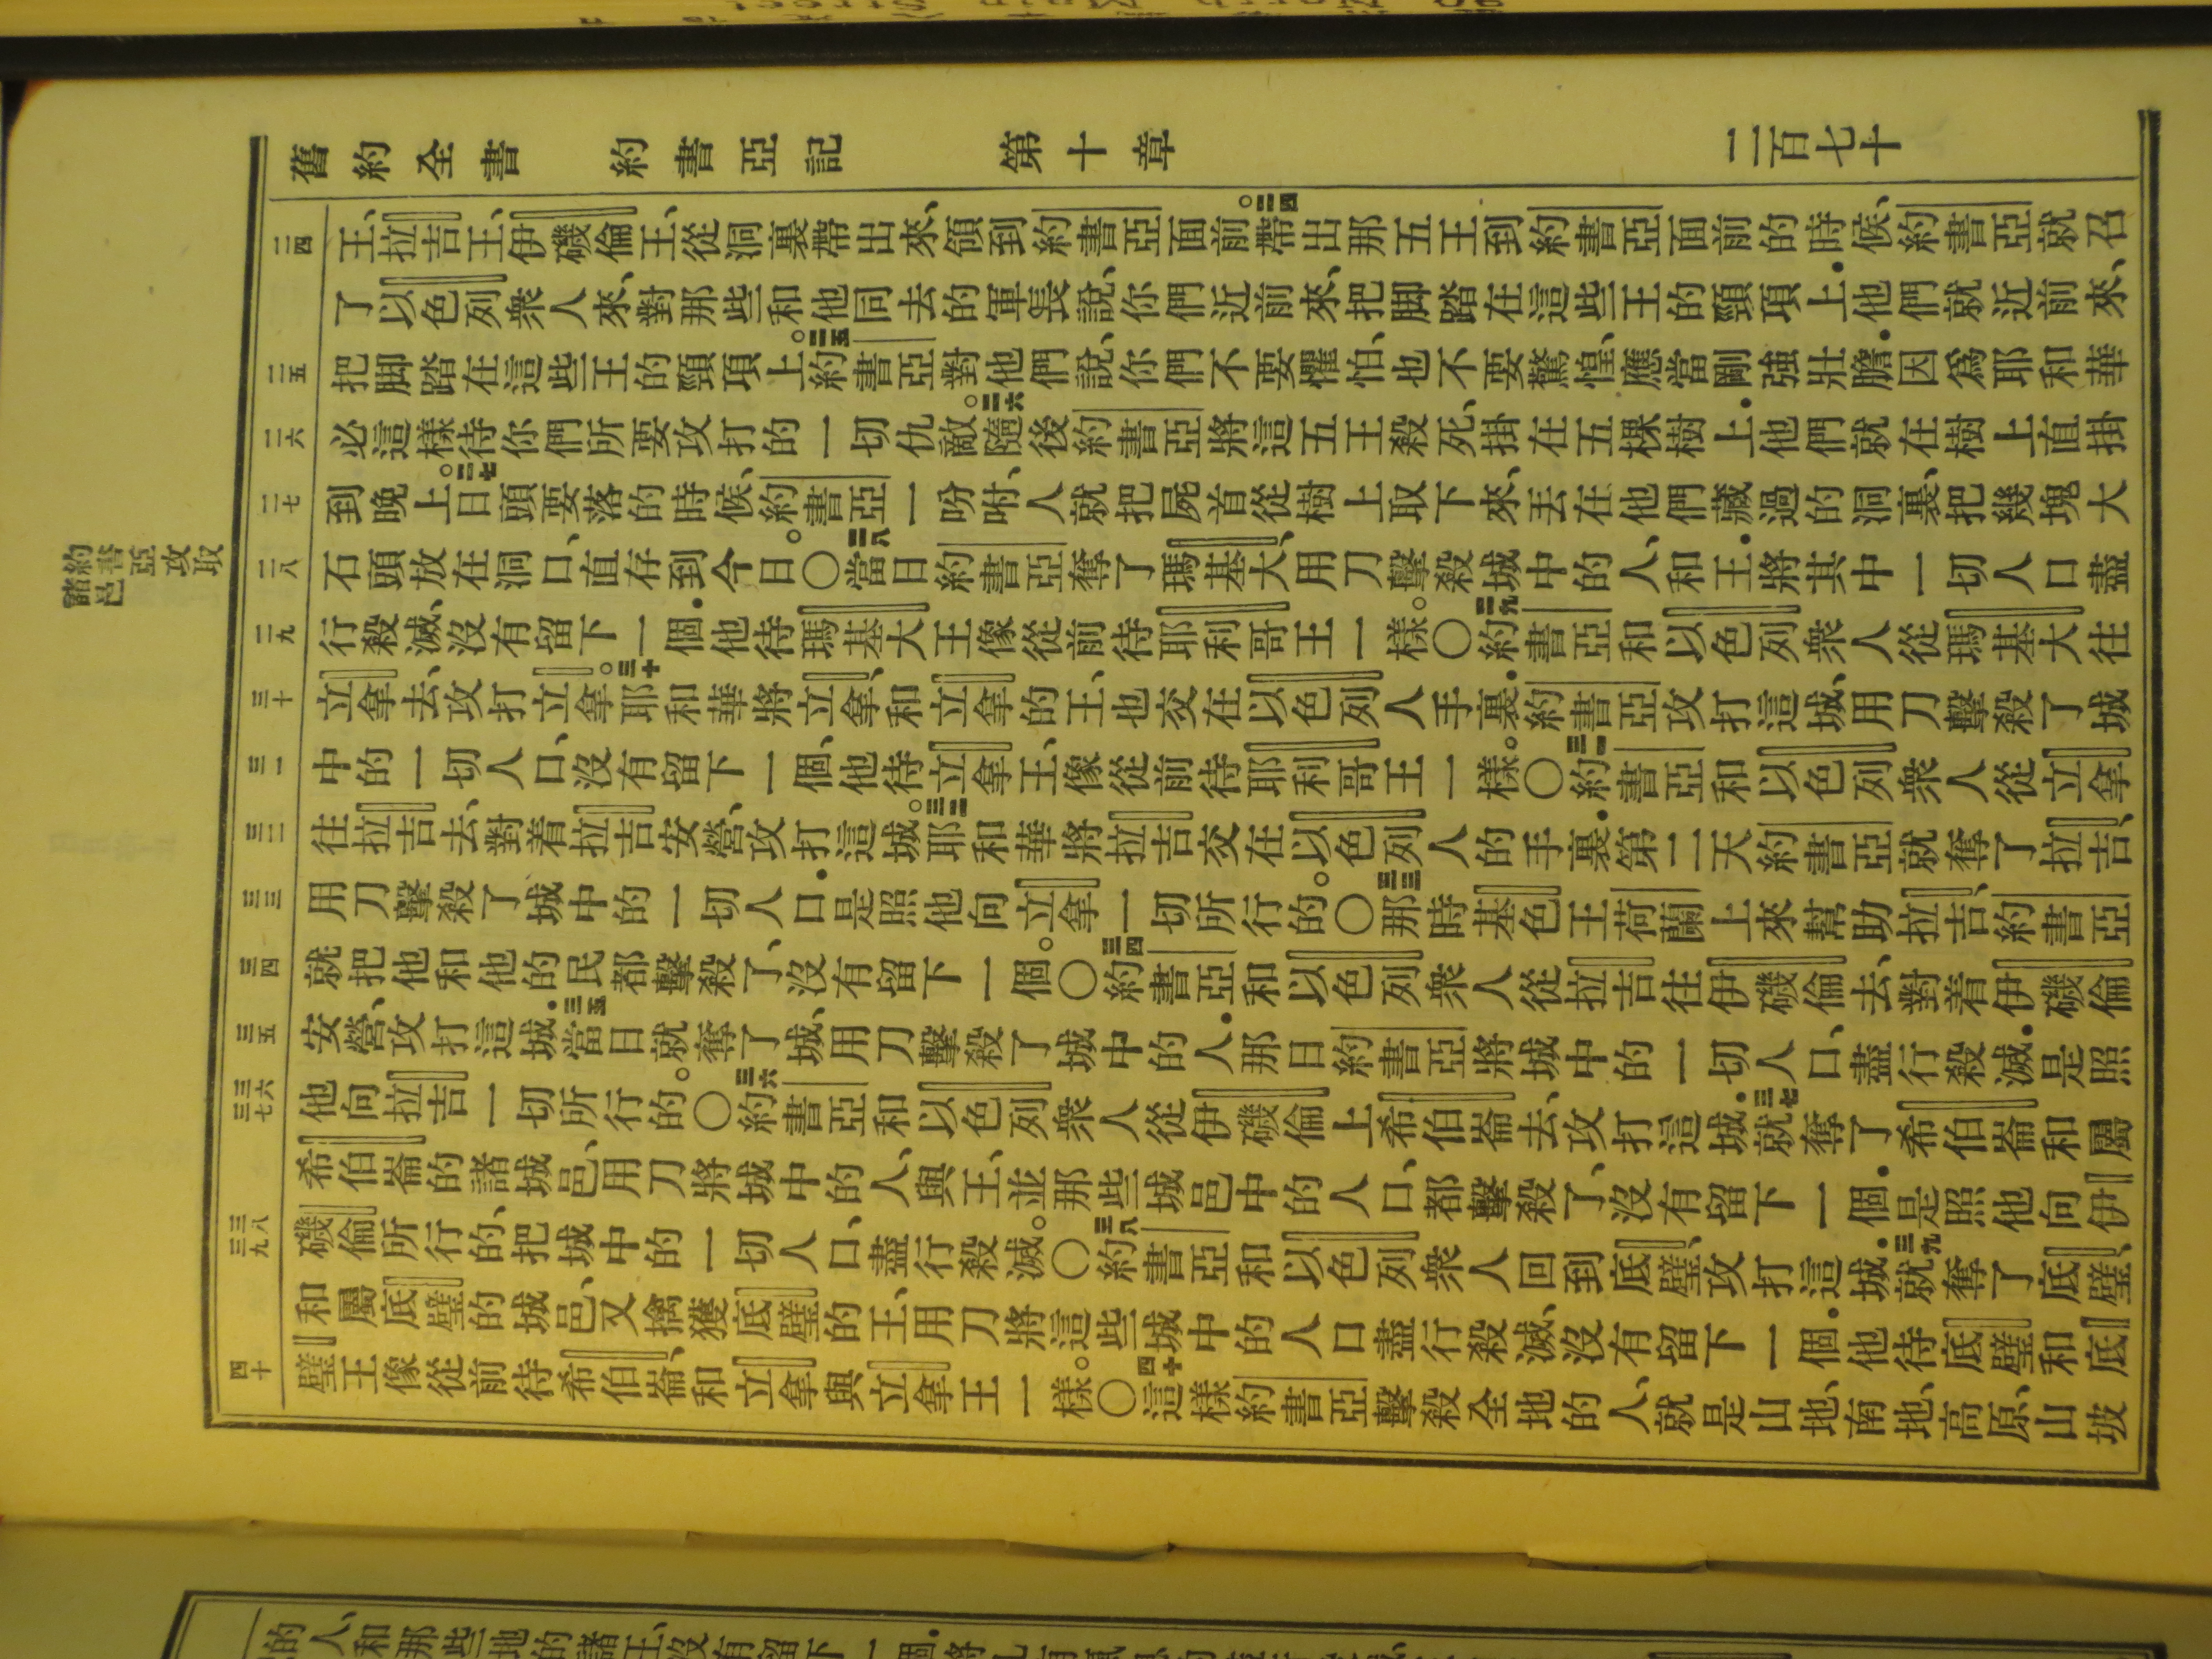 舊約全書 約書亞記 第十章 二百七十
王、拉吉王、伊磯倫王、從洞裏帶出來、領到約書亞面前。二四帶出那五王到約書亞面前的時候、約書亞就召
了以色列衆人來、對那些和他同去的軍長說、你們近前來、把脚踏在這些王的頸項上.他們就近前來、
把脚踏在這些王的頸項上。二五約書亞對他們說、你們不要懼怕、也不要驚惶、應當剛強壯膽.因爲耶和華
必這樣待你們所要攻打的一切仇敵。二六隨後約書亞將這五王殺死、掛在五棵樹上.他們就在樹上直掛
到晚上。二七日頭要落的時候、約書亞一吩咐、人就把屍首從樹上取下來、丟在他們藏過的洞裏、把幾塊大
石頭放在洞口、直存到今日。〇二八當日約書亞奪了瑪基大、用刀擊殺城中的人、和王.將其中一切人口盡
行殺滅、沒有留下一個.他待瑪基大王像從前待耶利哥王一樣。〇二九約書亞和以色列衆人從瑪基大往
立拿去、攻打立拿。三十耶和華將立拿、和立拿的王、也交在以色列人手裏.約書亞攻打這城、用刀擊殺了城
中的一切人口、沒有留下一個、他待立拿王、像從前待耶利哥王一樣。〇三一約書亞和以色列衆人從立拿
往拉吉去、對着拉吉安營、攻打這城。三二耶和華將拉吉交在以色列人的手裏.第二天約書亞就奪了拉吉、
用刀擊殺了城中的一切人口.是照他向立拿一切所行的。〇三三那時基色王荷蘭上來幫助拉吉、約書亞
就把他和他的民都擊殺了、沒有留下一個。〇三四約書亞和以色列衆人從拉吉往伊磯倫去、對着伊磯倫
安營、攻打這城.三五當日就奪了城、用刀擊殺了城中的人.那日約書亞將城中的一切人口、盡行殺滅.是照
他向拉吉一切所行的。〇三六約書亞和以色列衆人從伊磯倫上希伯崙去、攻打這城.三七就奪了希伯崙和屬
希伯崙的諸城邑、用刀將城中的人、與王、並那些城邑中的人口、都擊殺了、沒有留下一個.是照他向伊
磯倫所行的、把城中的一切人口、盡行殺滅。〇三八約書亞和以色列衆人回到底璧、攻打這城.三九就奪了底璧、
和屬底璧的城邑、又擒獲底璧的王、用刀將這些城中的人口盡行殺滅、沒有留下一個.他待底璧和底
璧王像從前待希伯崙、和立拿與立拿王一樣。〇四十這樣約書亞擊殺全地的人、就是山地、南地、高原、山坡
二四
二五
二六
二七
二八
二九
三十
三一
三二
三三
三四
三五
三六
三七
三八
三九
四十
約書亞攻取
諸邑
的人、和那些地的諸王、沒有留下一個.將